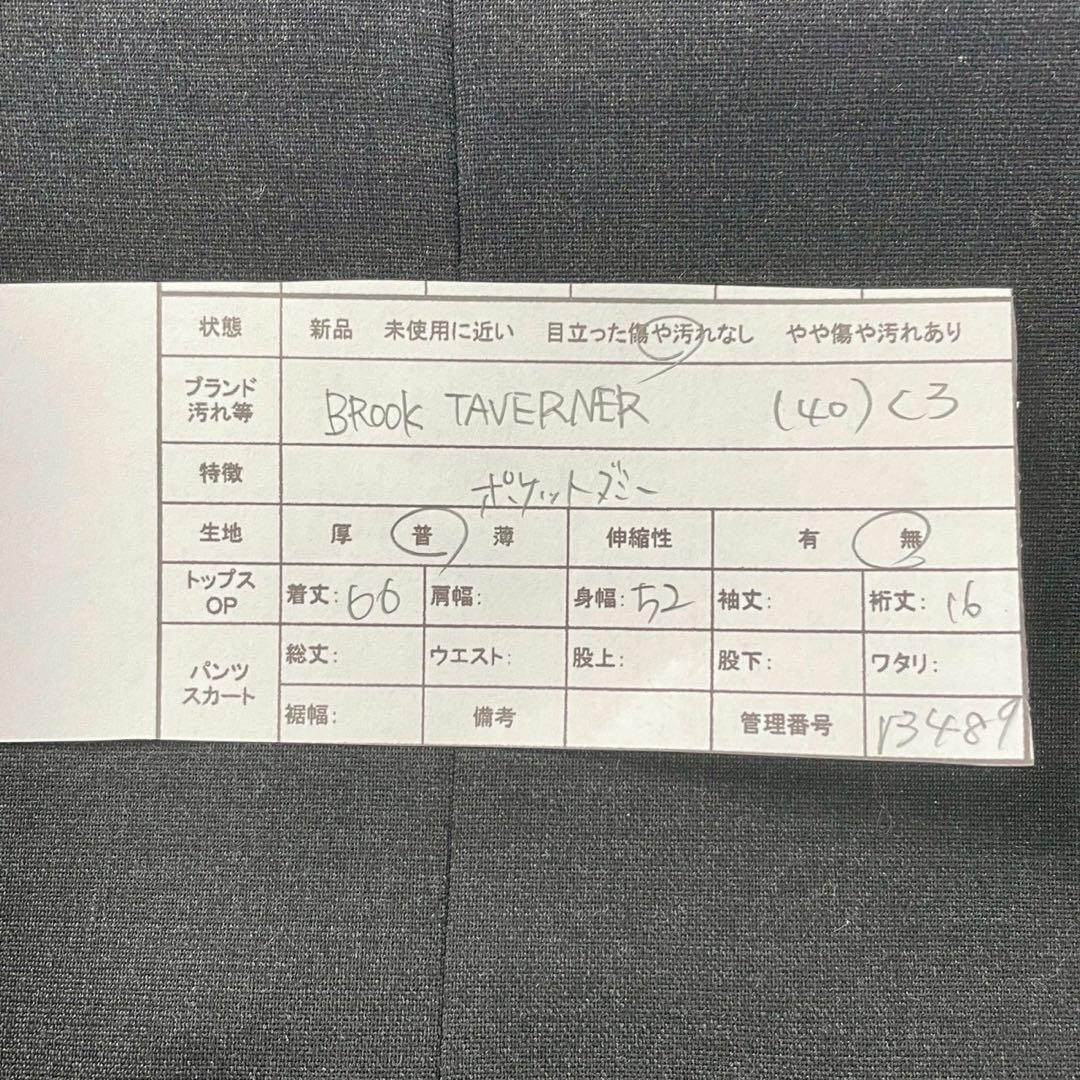 状態 新品 未使用に近い 目立った傷や汚れなし やや傷や汚れあり
ブランド
汚れ等 BROOK TAVERNER (40) C3
特徴 ポケットダミー
生地 厚 普 薄 伸縮性 有 無
トップス
OP 着丈: 66 肩幅: 身幅: 52 袖丈: 裄丈:
パンツ
スカート 総丈: ウエスト: 股上: 股下: ワタリ:
裾幅: 備考 管理番号 13489